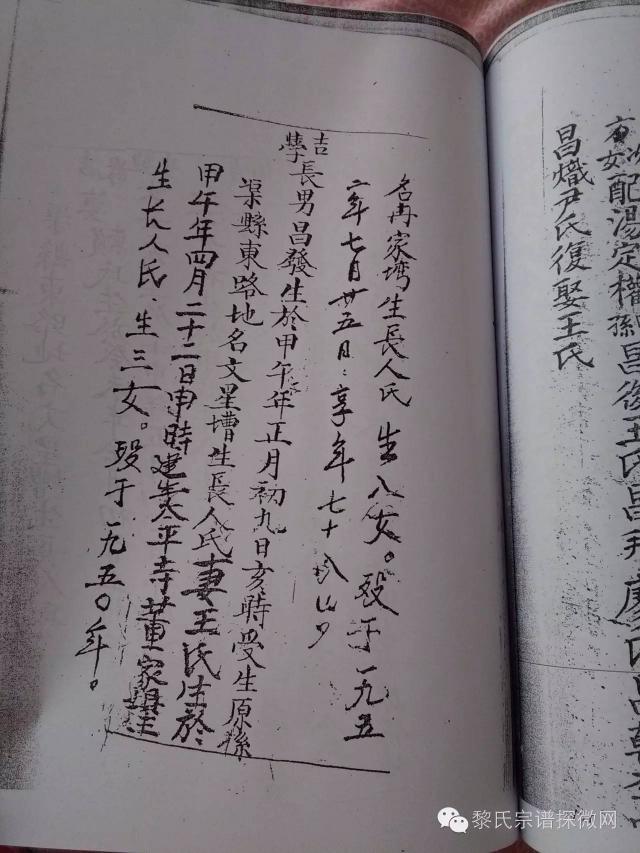 方次女配湯定權孫昌後王氏昌拜廖氏昌乾
昌熾尹氏復娶王氏
名冉家塆生長人氏 生八女。殁于一九五
六年七月廿五日：享年七十
吉
學長男昌發生於甲午年正月初九日亥時受生原係
渠縣東路地名文星壋生長人氏妻王氏生於
甲午年四月二十二日申時建生太平寺董家塆
生长人民．生三女。殁于一九五〇年。
黎氏宗谱探微网